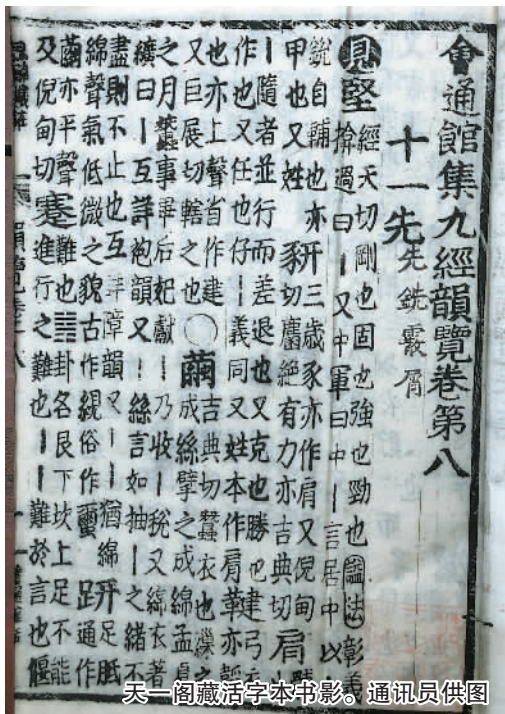 會通館集九經韻覽卷第八
十一先先銑霰屑
見堅經天切剛也固也強也勁也諡法彰義
揜過曰丨又中軍曰中丨言居中以
銳自輔也亦豜三歲豕亦作肩又倪甸
甲也又姓豜切麕絕有力亦古典切肩
丨隨者並行而差退也又克也勝也建弓
作也又任也仔丨義同又姓本作肩革亦
也亦上聲省作建○繭吉典切蠶衣也
又巨展切轄之也繭成絲擘之成綿孟
之月蠶事畢后妃獻丨乃收丨稅又綿衣著
纊曰丨互詳袍韻又丨絲言如抽丨之緒不
盡則不止也互詳障韻又丨丨猶綿趼足胝
綿聲氣低微之貌古作絸俗作璽趼通作
繭亦平聲蹇難也䷦卦名艮下坎上足不能
及倪甸切蹇進行之難也丨丨難於言也偃
天一阁藏活字本书影。通讯员供图